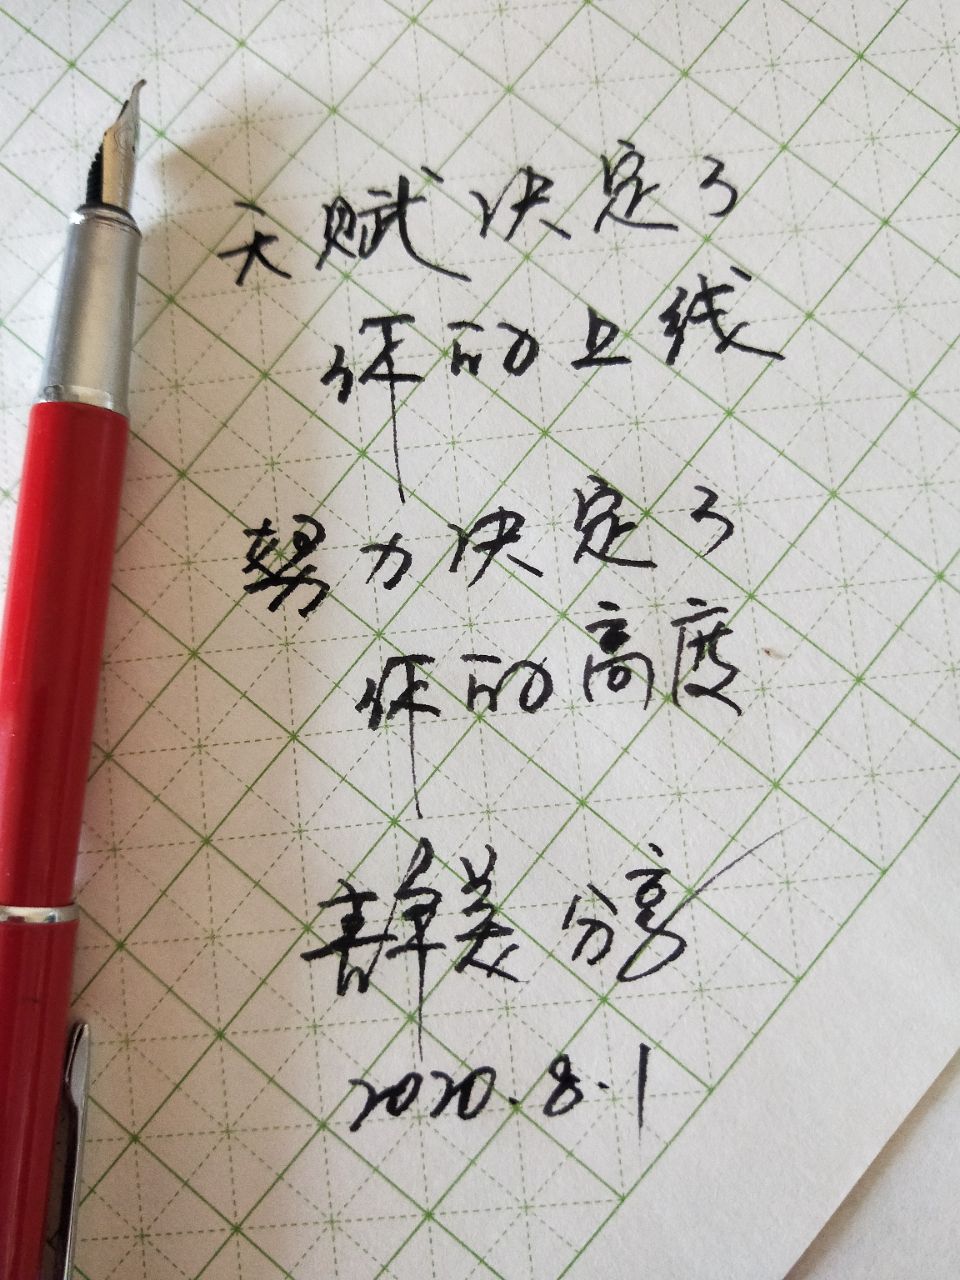 天赋决定了
你的上线
努力决定了
你的高度
静美分享
2020.8.1